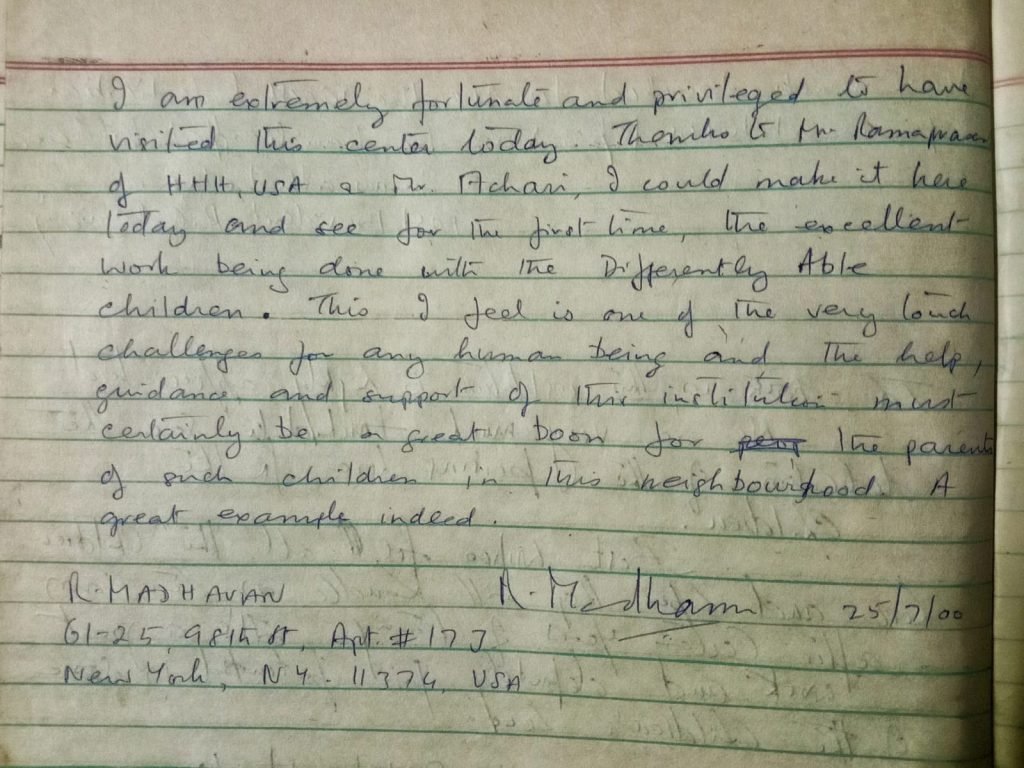 I am extremely fortunate and privileged to have
visited this center today. Thanks to Mr. Ramaprasad
of HHH, USA & Mr. Achari, I could make it here
today and see for the first time, the excellent
work being done with the Differently Able
children. This I feel is one of the very touch
challenges for any human being and the help,
guidance and support of this institution must
certainly be a great boon for the parents
of such children in this neighbourhood. A
great example indeed.
R. MADHAVAN R. Madhavan 25/7/00
61-25, 98th St, Apt. # 17J
New York, NY. 11374, USA